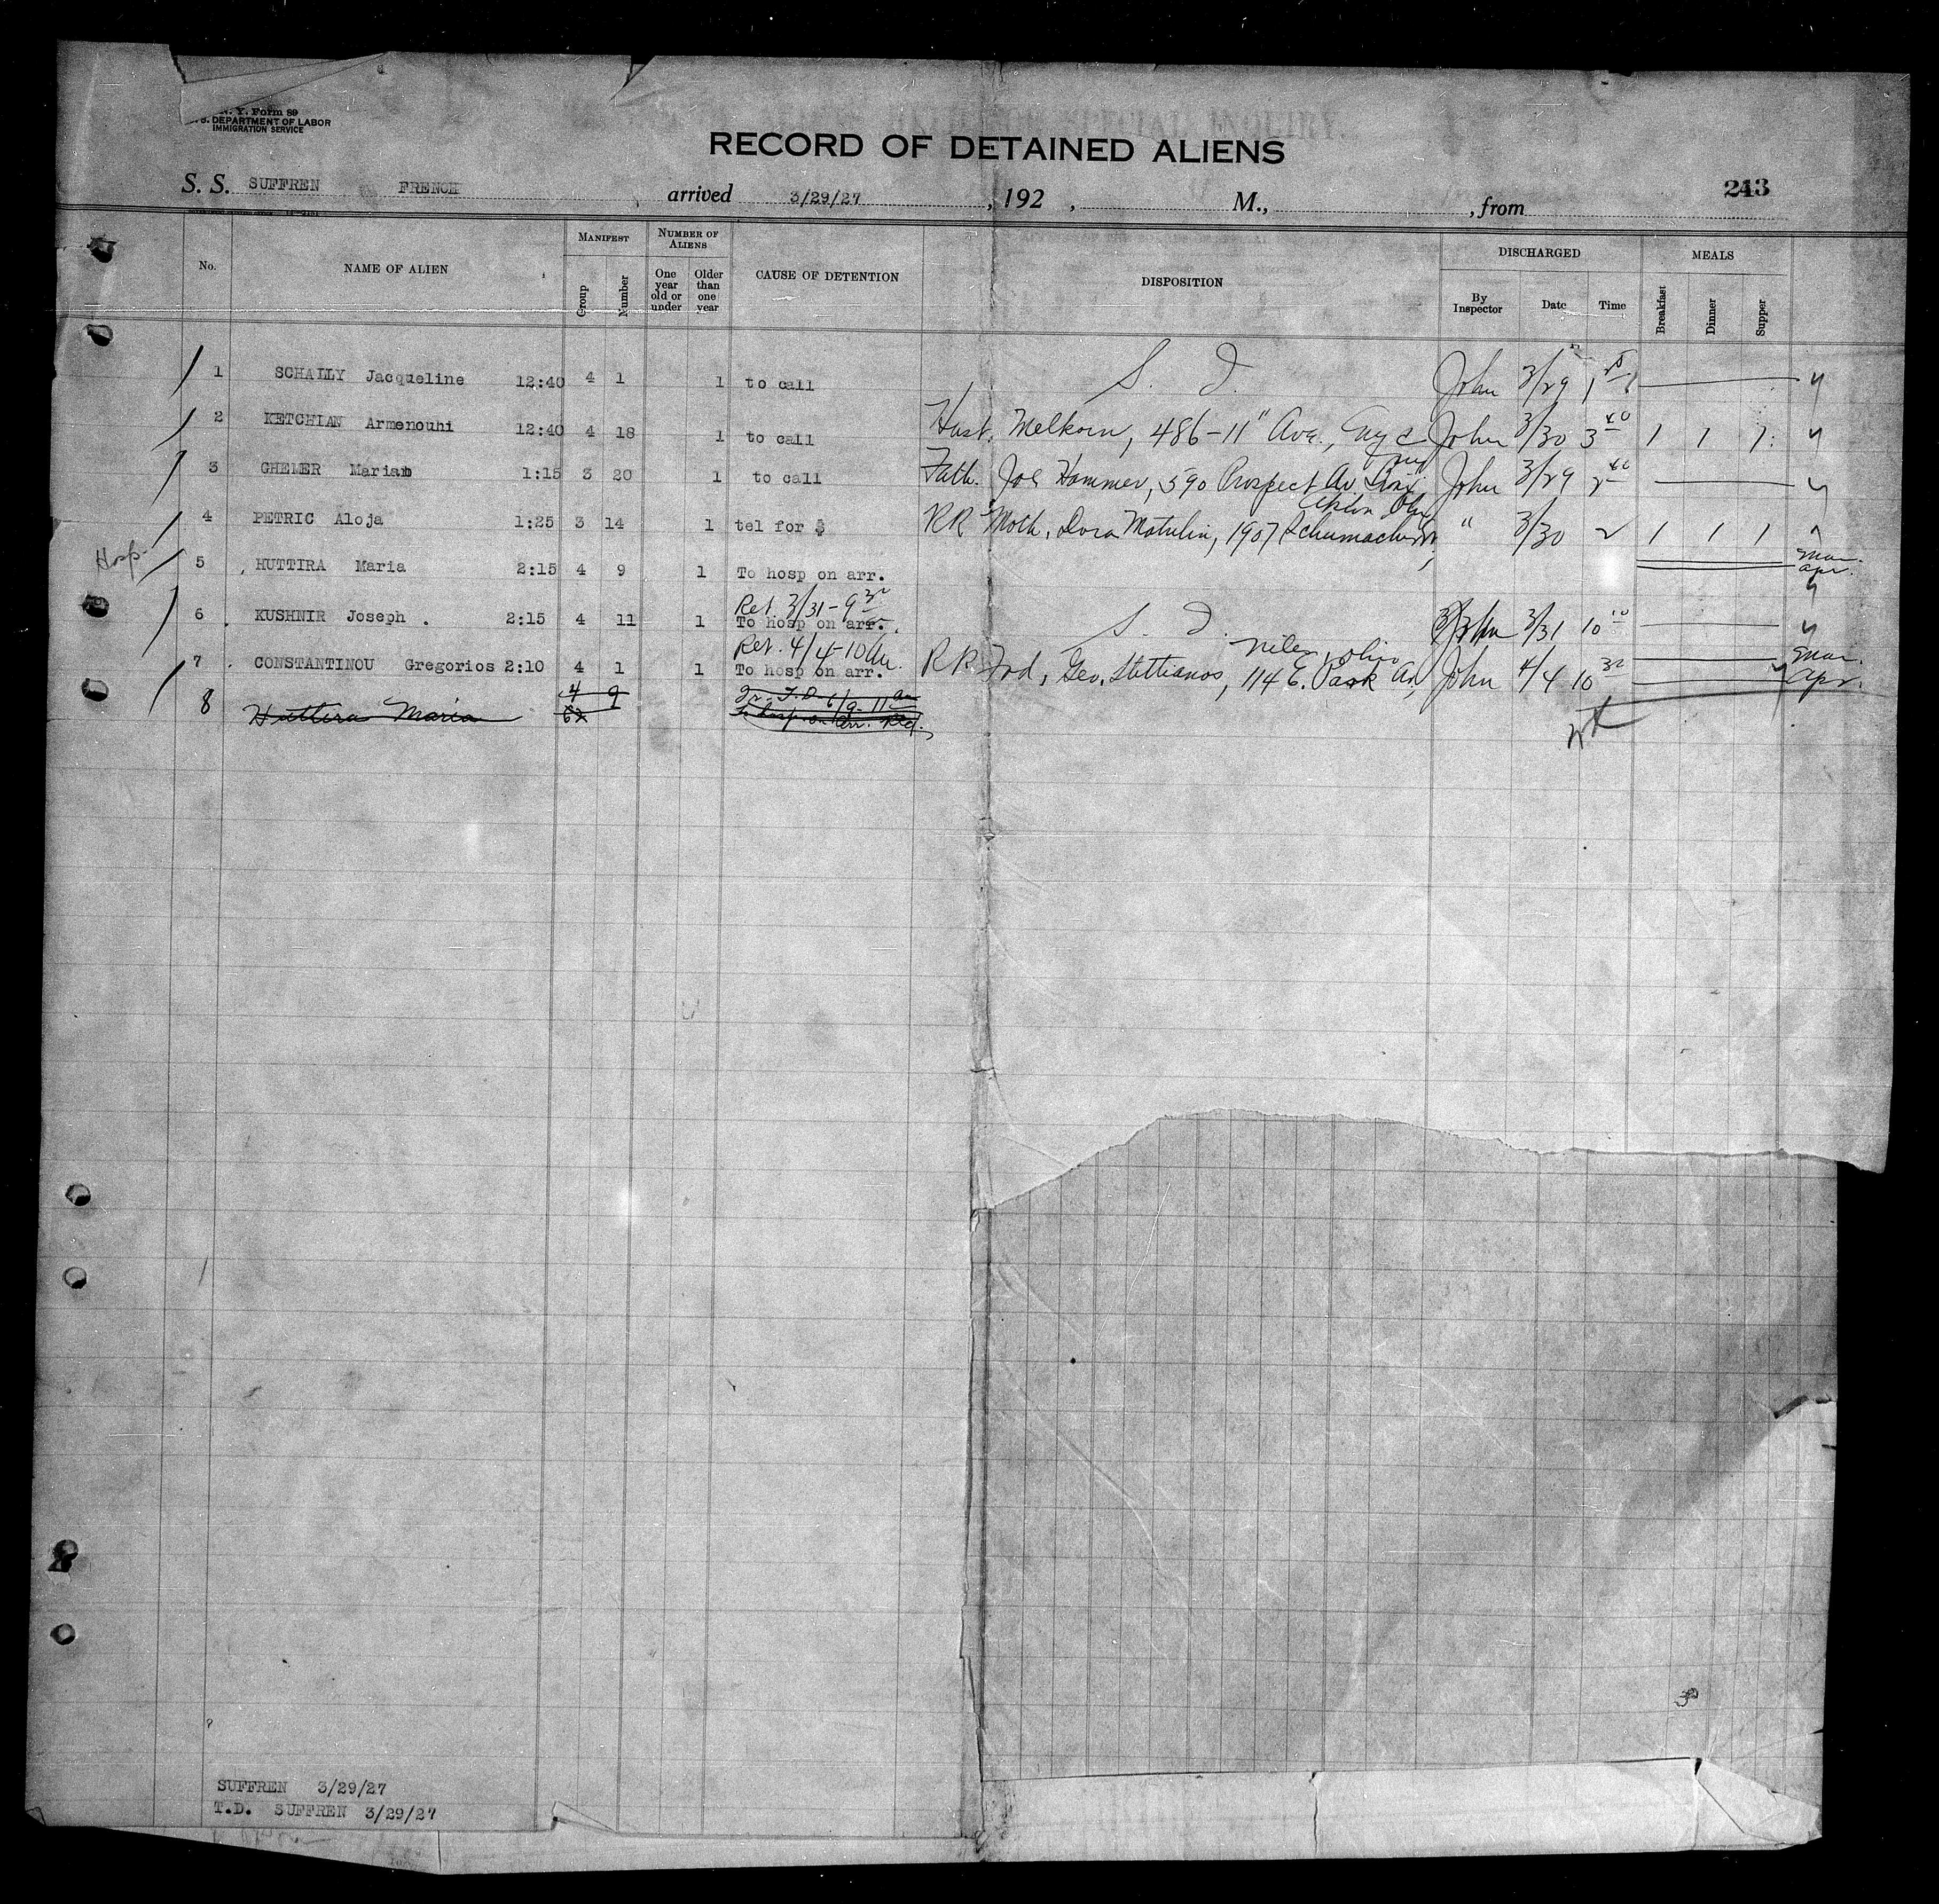 N. Y. Form 89
U. S. DEPARTMENT OF LABOR
IMMIGRATION SERVICE
SPECIAL INQUIRY.
RECORD OF DETAINED ALIENS
S. S. SUFFREN FRENCH arrived 3/29/27, 192 , M., , from
243
No. NAME OF ALIEN MANIFEST Group Number NUMBER OF ALIENS One year old or under Older than one year CAUSE OF DETENTION DISPOSITION DISCHARGED By Inspector Date Time MEALS Breakfast Dinner Supper
1 SCHAILLY Jacqueline 12:40 4 1 1 to call S. I. John 3/29 1
2 KETCHIAN Armenouhi 12:40 4 18 1 to call Husb. Melkon, 486-11" Ave., John 3/30 3 40 1 1 1
3 GHEMER Mariam 1:15 3 20 1 to call Fath. Joe Hammer, 590 Prospect Av John 3/29 2 40
Akron Ohio
4 PETRIC Aloja 1:25 3 14 1 tel for $ RR Moth. Dora Matulin, 1907 Schumacher " 3/30 2 1 1 1
Hosp. 5 HUTTIRA Maria 2:15 4 9 1 To hosp on arr. Mar. Apr.
Ret. 3/31-9 30
6 KUSHNIR Joseph 2:15 4 11 1 To hosp on arr. S. I. John 3/31 10 10
Ret. 4/4-10 AM. Niles, Ohio
7 CONSTANTINOU Gregorios 2:10 4 1 1 To hosp on arr. RR Frd, Geo. Stettianos, 114 E. Park Av, John 4/4 10 30 Mar. Apr.
8 Huttira Maria 4 9 Tr. T.D. 6/9-11 am
To hosp. on arr.
SUFFREN 3/29/27
T.D. SUFFREN 3/29/27